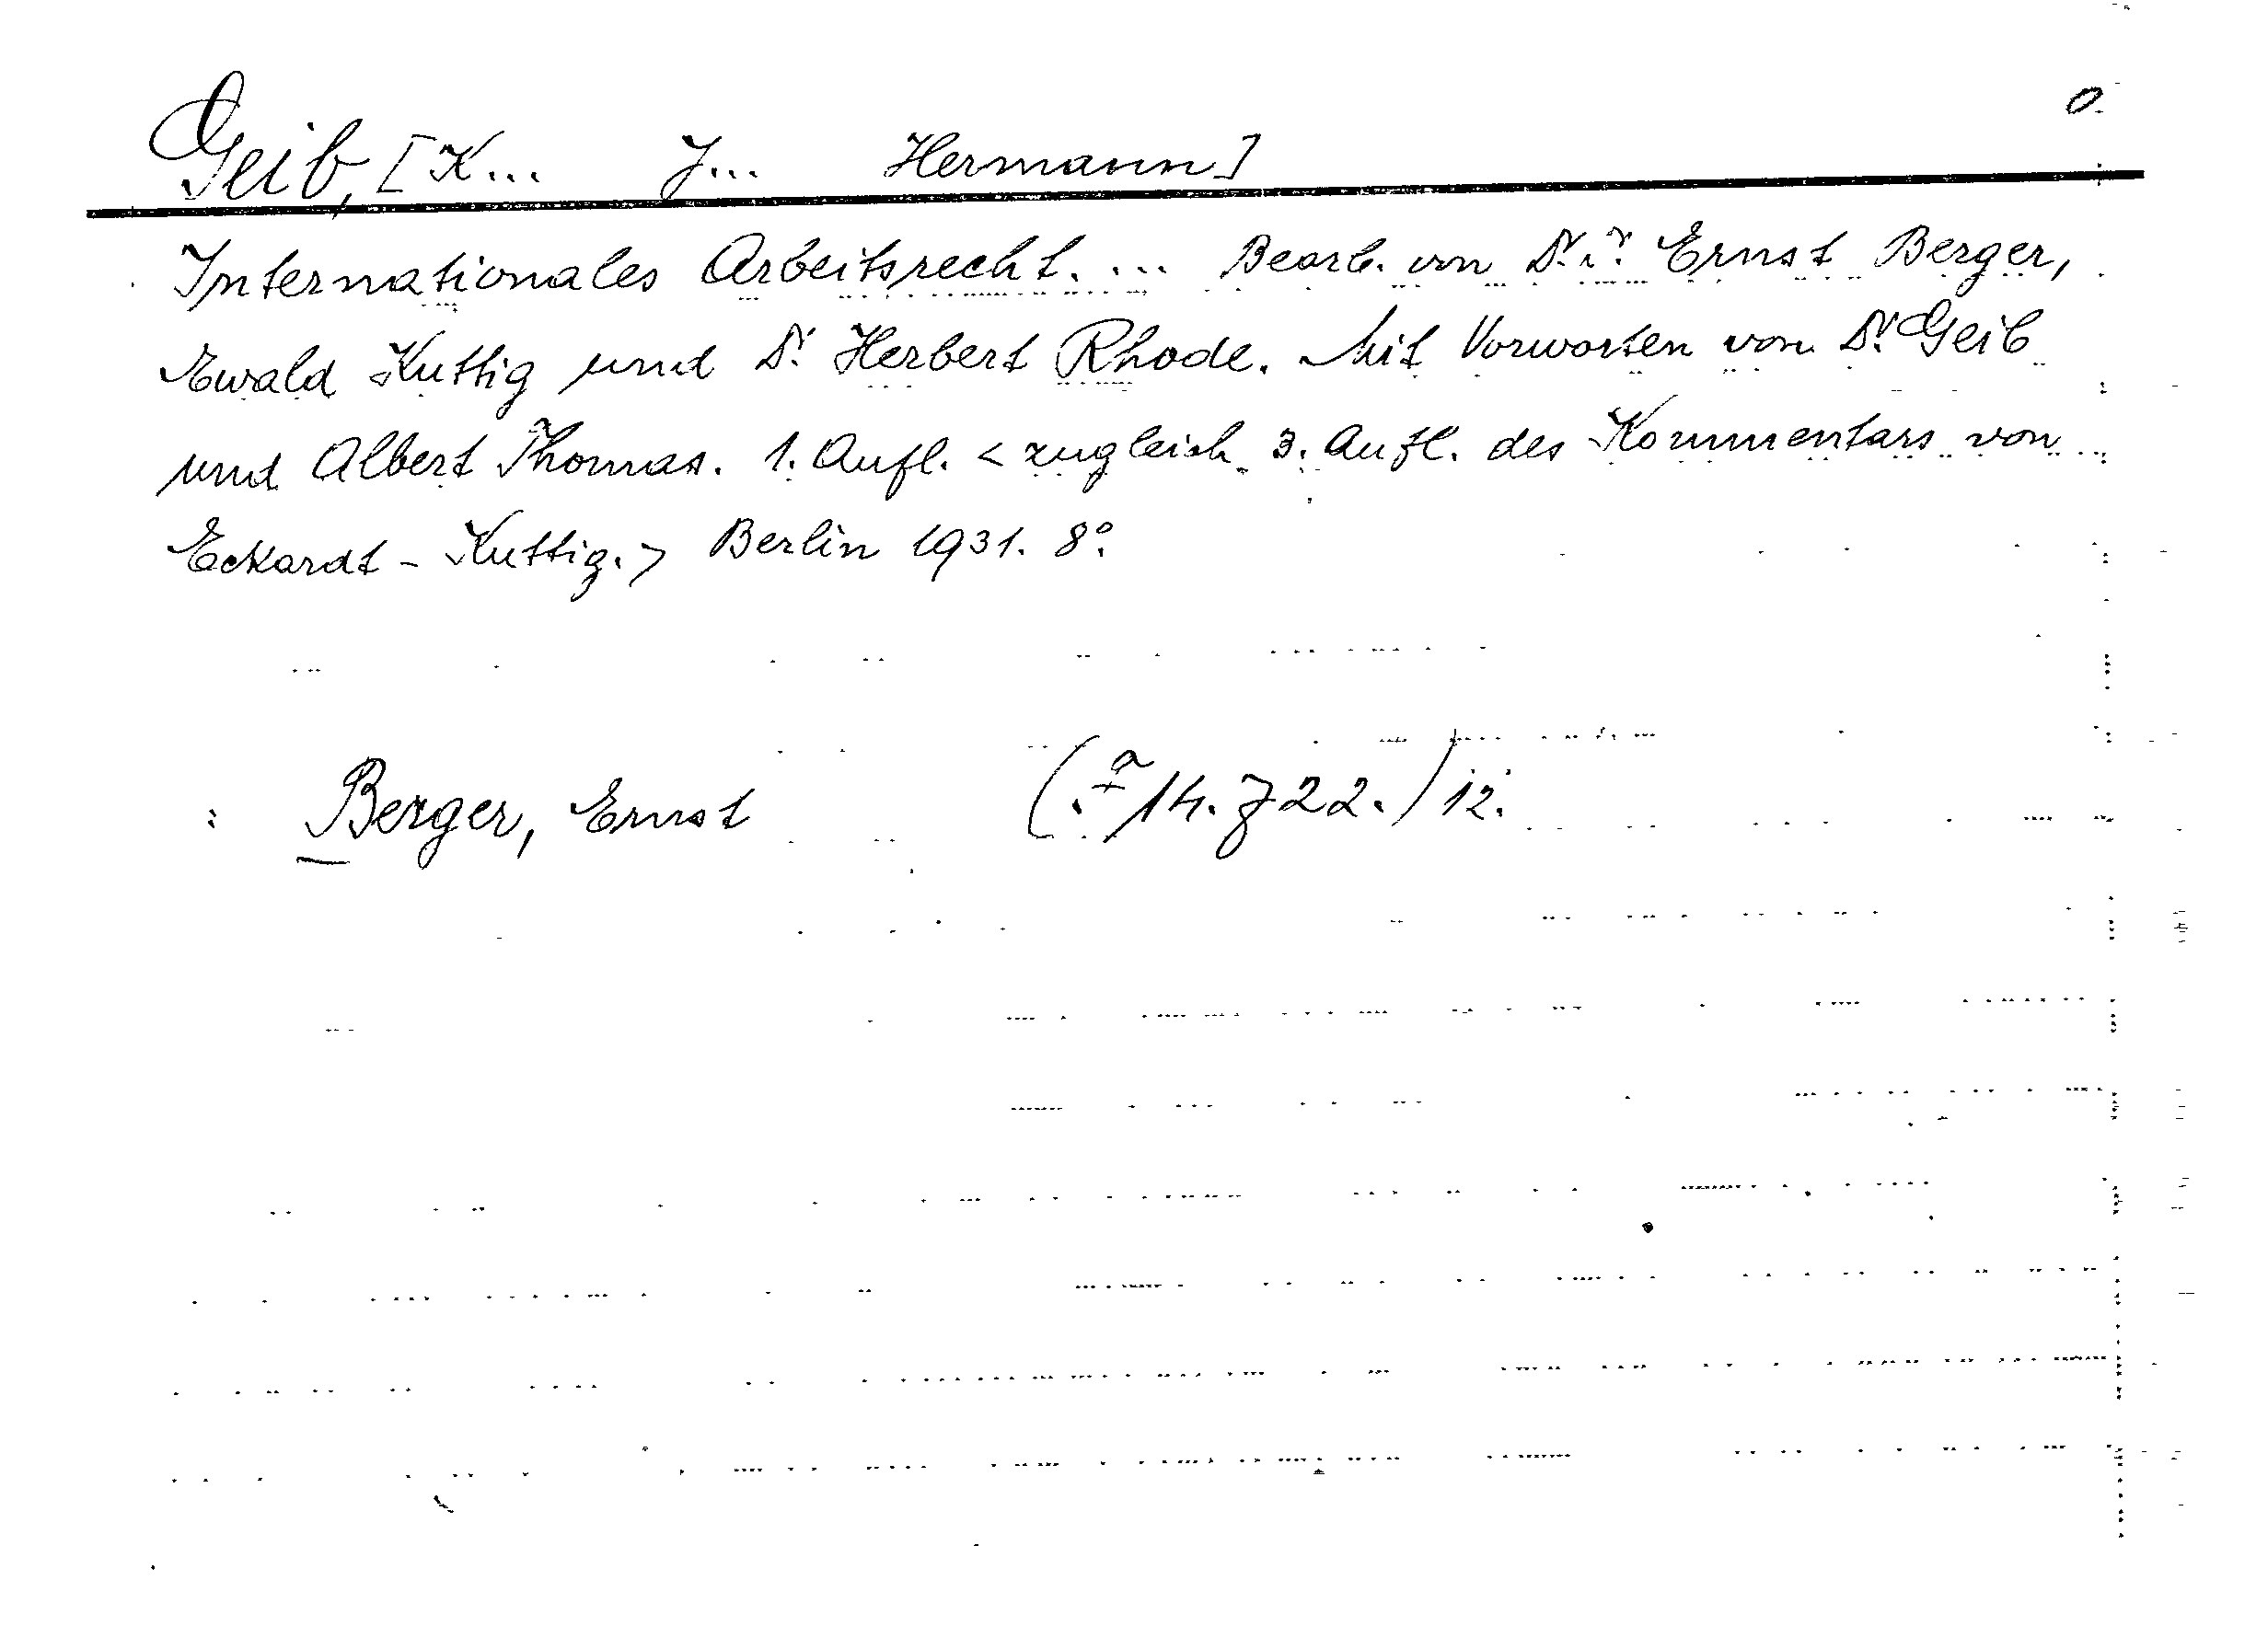 O.
Geib, [K... J... Hermann]
Internationales Arbeitsrecht. ... Bearb. von Dr. Ernst Berger,
Ewald Kuttig und Dr. Herbert Rhode. Mit Vorworten von Dr. Geib
und Albert Thomas. 1. Aufl. < zugleich 3. Aufl. des Kommentars von
Eckardt - Kuttig. > Berlin 1931. 8°.
: Berger, Ernst 14. 7 22. / 12.